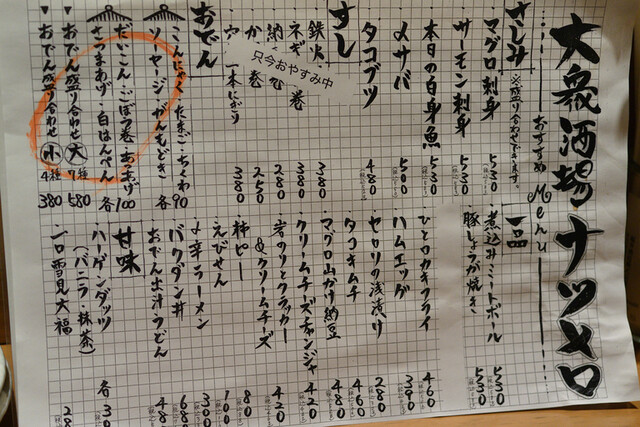 大衆酒場ナツメロ
おすすめ Menu
さしみ ※盛り合わせできます。
マグロ刺身 530
サーモン刺身 530
本日の白身魚 530
〆サバ 500
タコブツ 480
すし
只今おやすみ中
鉄火巻 380
ネギ 巻 380
納 巻 280
か 巻 250
穴 一本にぎり 380
おでん
こんにゃく・たまご・ちくわ
ソーセージ・がんもどき 各90
だいこん・ごぼう巻・あつあげ
さつまあげ・白はんぺん 各100
▼おでん盛り合わせ 大 7種 580
▼おでん盛り合わせ 小 4種 380
一品
煮込みミートボール 530
豚しょうが焼き 530
ひとロカキフライ 460
ハムエッグ 390
セロリの浅漬け 280
タコキムチ 460
マグロ山かけ納豆 480
クリームチーズチャンジャ 420
岩のりとクラッカー
&クリームチーズ 420
柿ピー 80
えびせん 100
〆辛ラーメン 300
バクダン丼 680
おでん出汁うどん 48
甘味
ハーゲンダッツ
(バニラ・抹茶) 各30
一口雪見大福 28